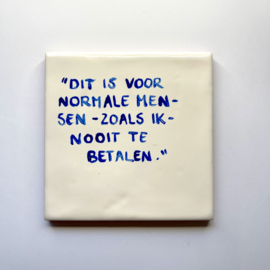 "DIT IS VOOR
NORMALE MEN-
SEN -ZOALS IK-
NOOIT TE
BETALEN."